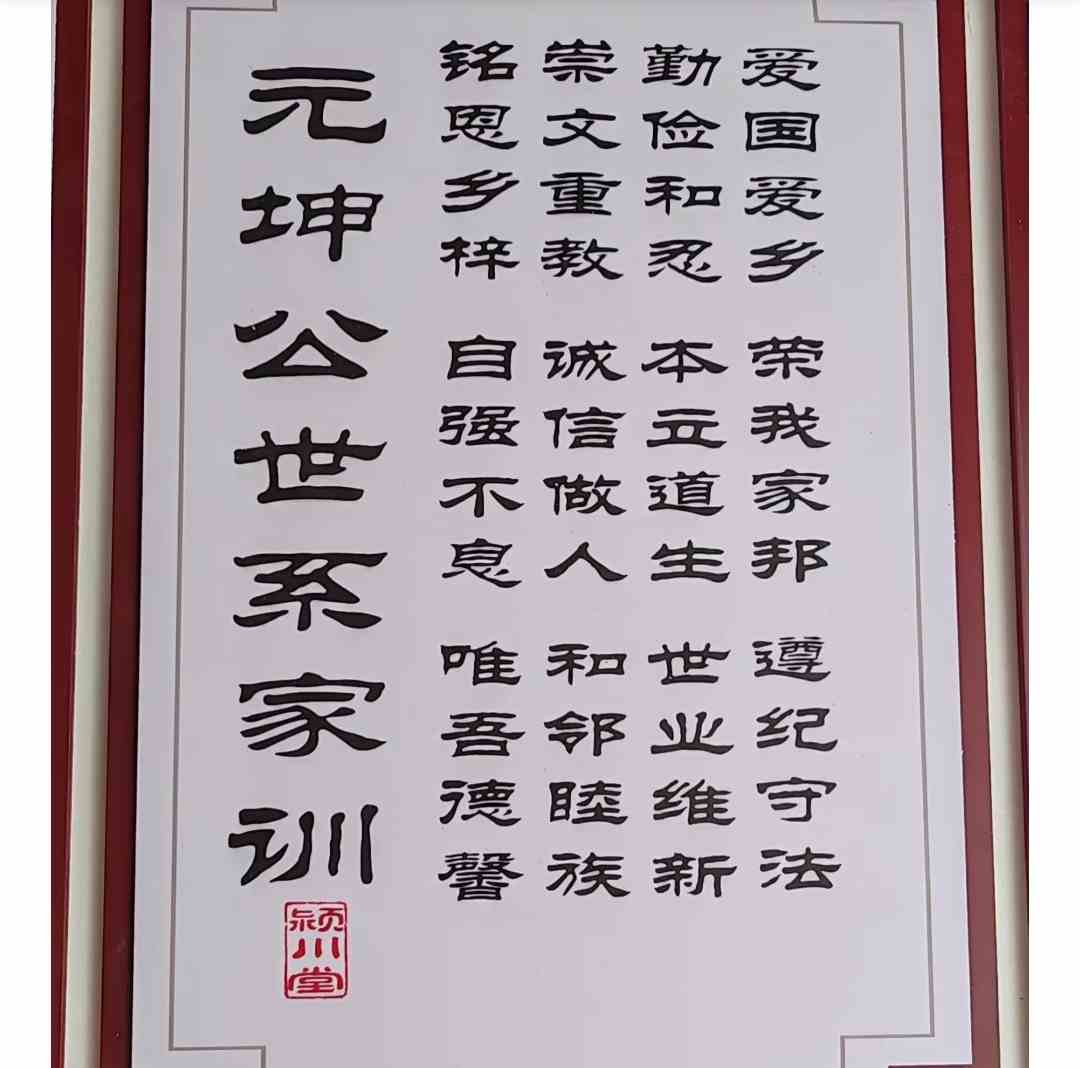 爱国爱乡 荣我家邦 遵纪守法
勤俭和忍 本立道生 世业维新
崇文重教 诚信做人 和邻睦族
铭恩乡梓 自强不息 唯吾德馨
元坤公世系家训
颍川堂